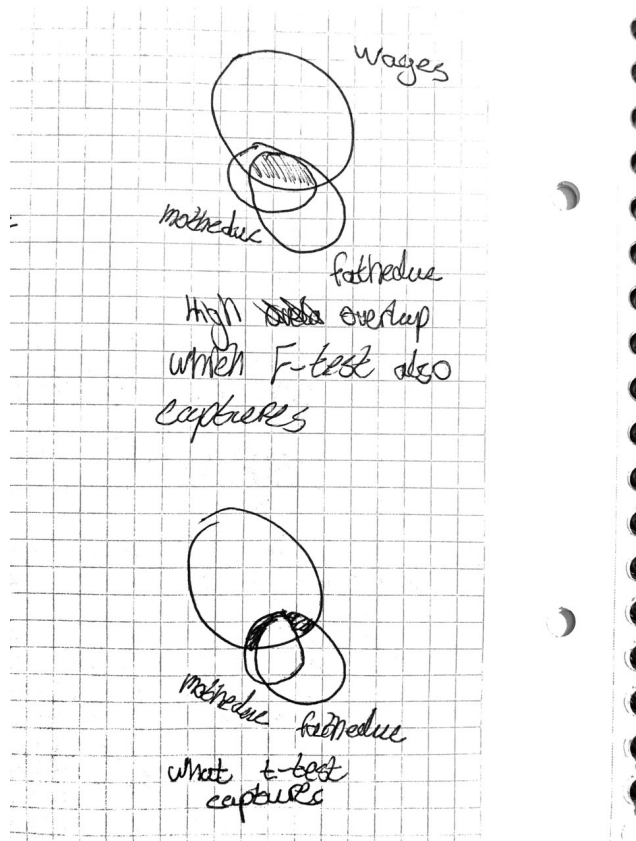 Wages
motheduc
fatheduc
High overlap
which F-test also
captures
motheduc
fatheduc
what t-test
captures